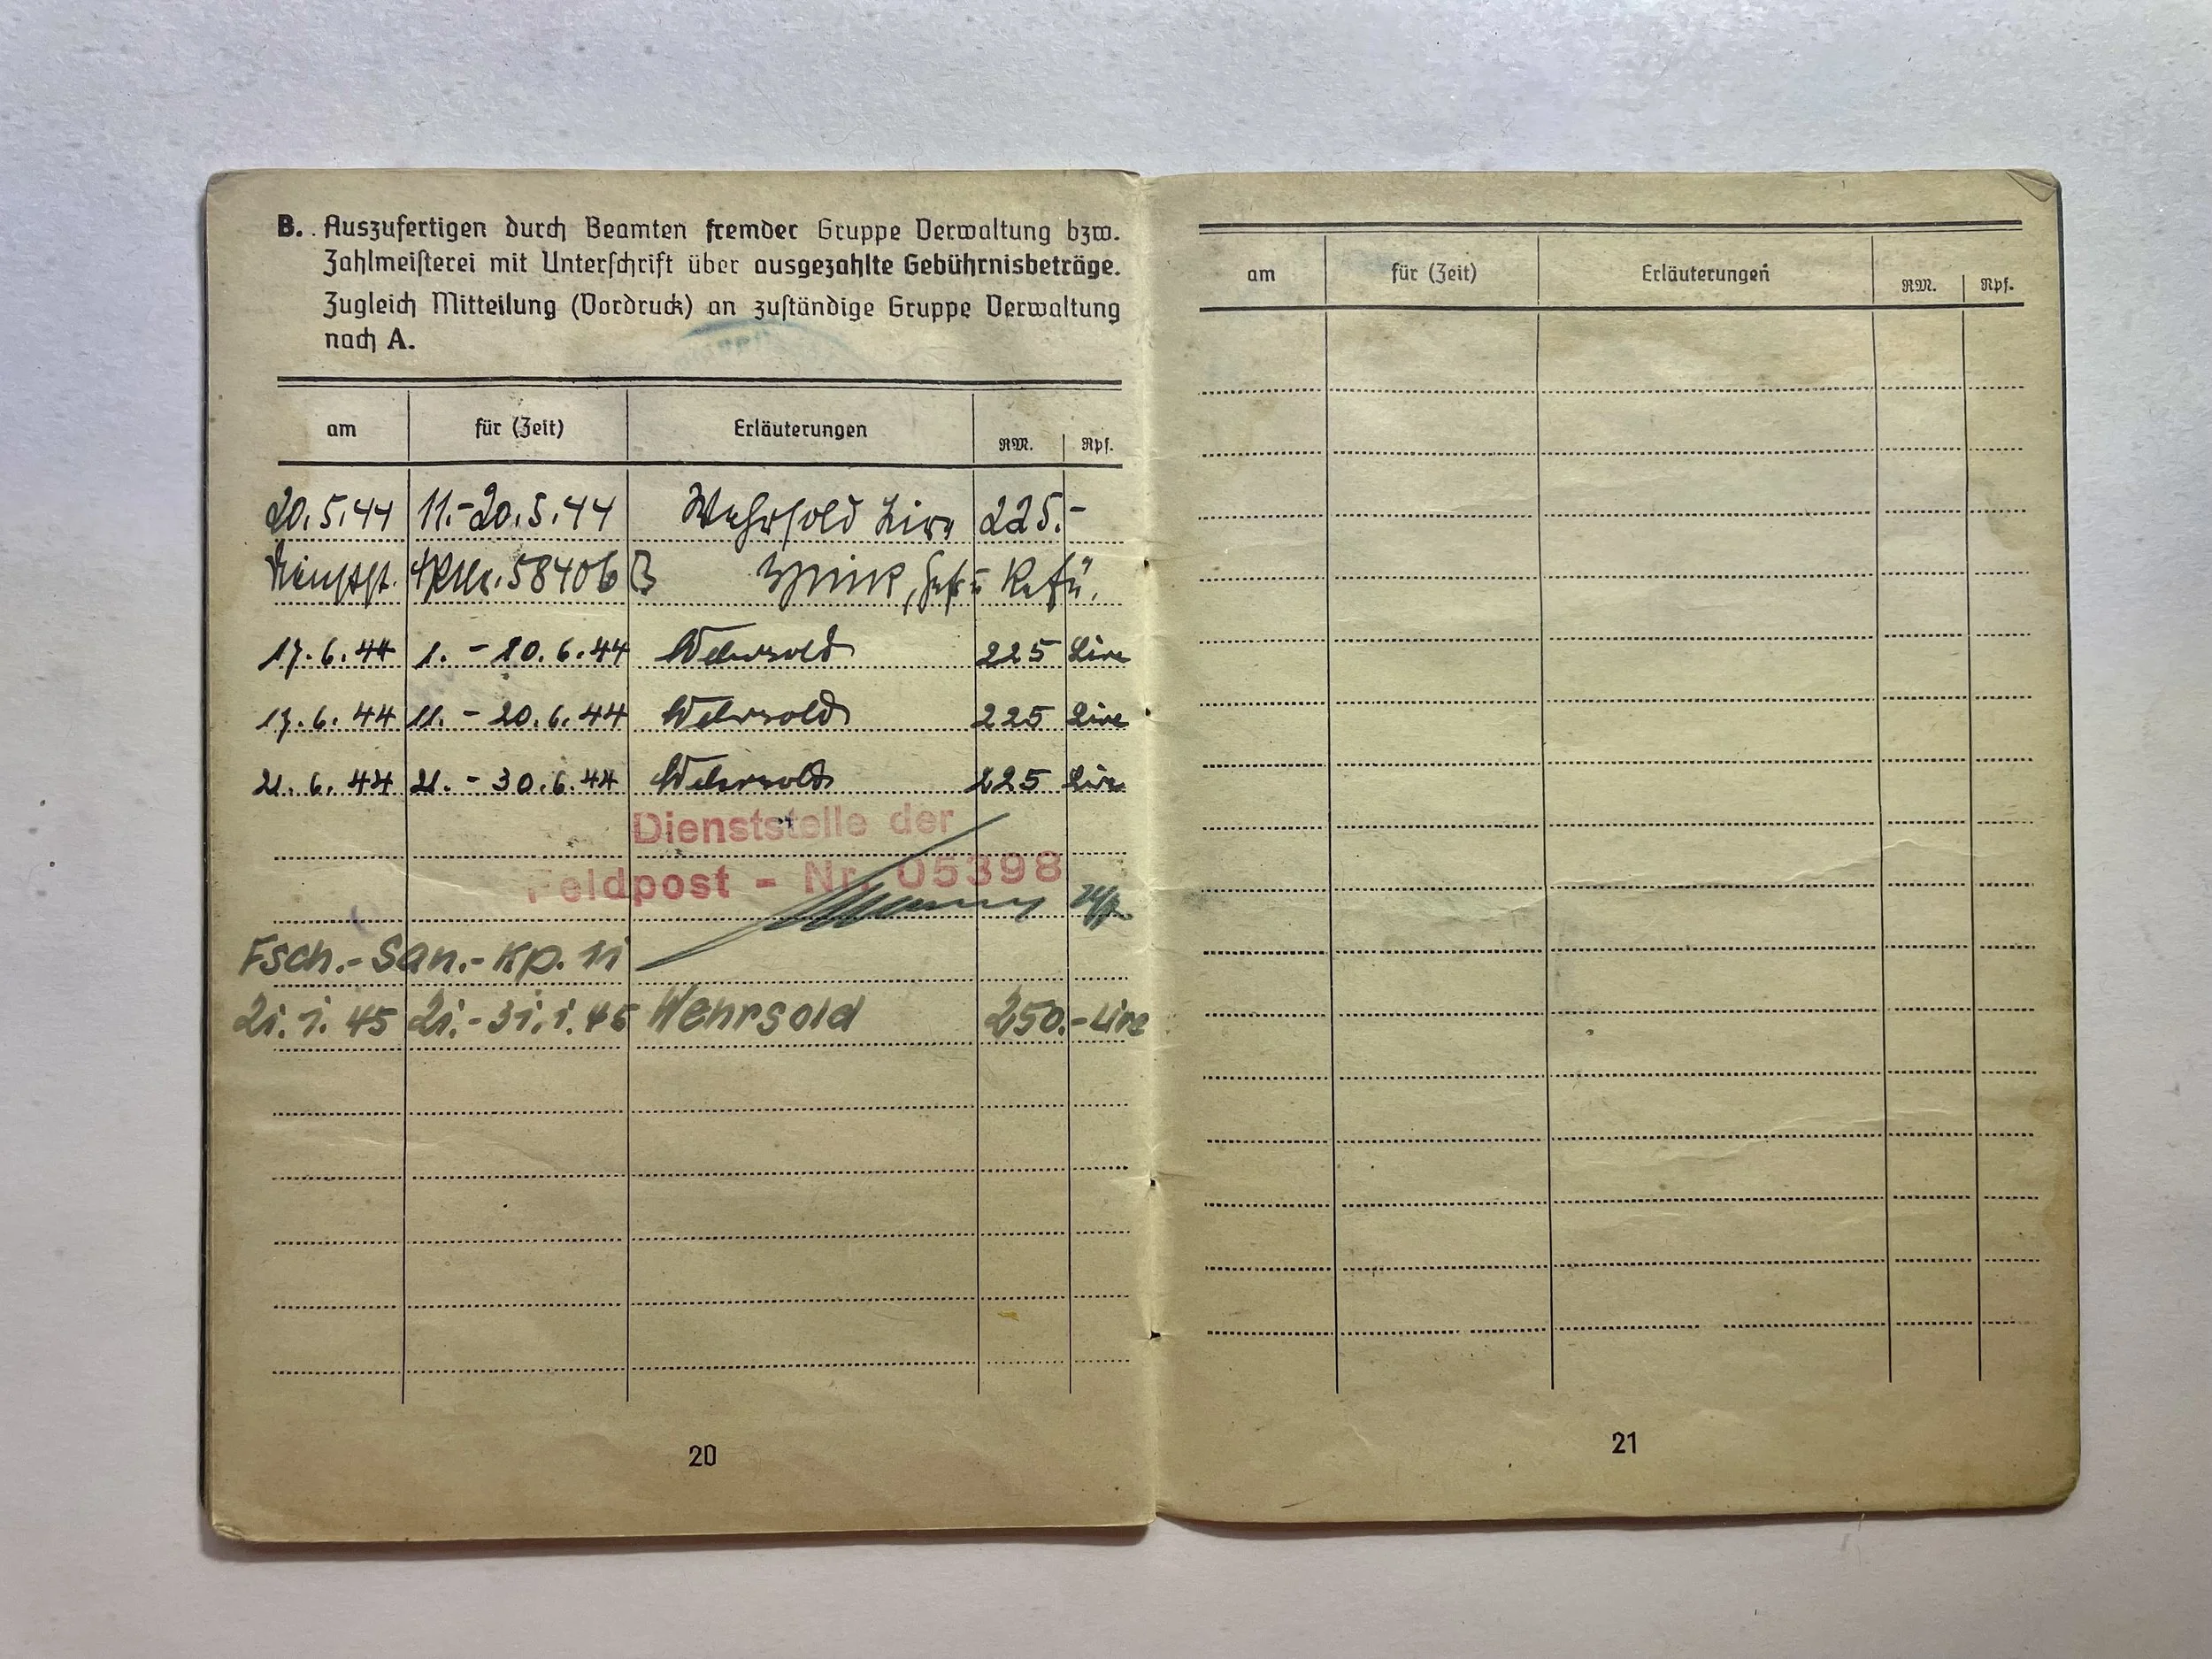 B. Auszufertigen durch Beamten fremder Gruppe Verwaltung bzw.
Zahlmeisterei mit Unterschrift über ausgezahlte Gebührnisbeträge.
Zugleich Mitteilung (Vordruck) an zuständige Gruppe Verwaltung
nach A.
am für (Zeit) Erläuterungen RM. Rpf.
20.5.44 11.-20.5.44 Wehrsold Lire 225.-
Dienstst. 58406 B
17.6.44 1. - 10.6.44 Wehrsold 225 Lire
17.6.44 11. - 20.6.44 Wehrsold 225 Lire
21.6.44 21. - 30.6.44 Wehrsold 225 Lire
Dienststelle der
Feldpost - Nr. 05398
Fsch.-San.-Kp. 11
21.1.45 21.-31.1.45 Wehrsold 250.- Lire
20
am für (Zeit) Erläuterungen RM. Rpf.
21